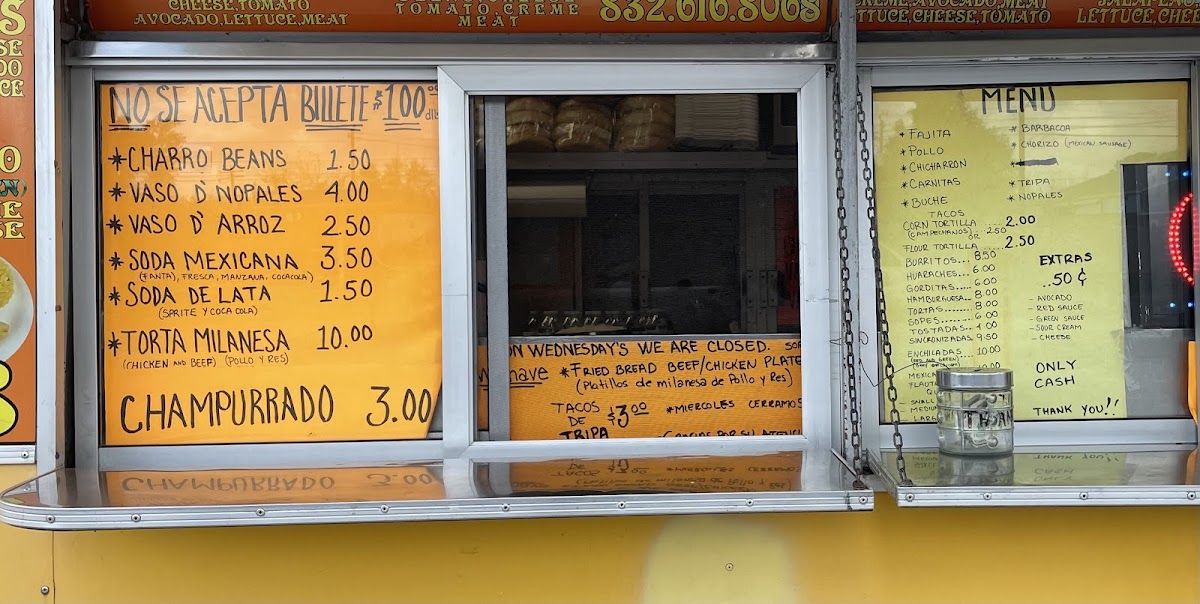 CHEESE,TOMATO
AVOCADO,LETTUCE,MEAT
TOMATO,CREME
MEAT
832.616.8068
CREME,AVOCADO,MEAT
LETTUCE,CHEESE,TOMATO
LETTUCE,CHEESE
NO SE ACEPTA BILLETE $100
* CHARRO BEANS 1.50
* VASO D' NOPALES 4.00
* VASO D' ARROZ 2.50
* SODA MEXICANA 3.50
(FANTA, FRESCA, MANZANA, COCACOLA)
* SODA DE LATA 1.50
(SPRITE Y COCA COLA)
* TORTA MILANESA 10.00
(CHICKEN AND BEEF) (POLLO Y RES)
CHAMPURRADO 3.00
ON WEDNESDAY'S WE ARE CLOSED.
have * FRIED BREAD BEEF/CHICKEN PLATE
(Platillos de milanesa de Pollo y Res)
TACOS DE TRIPA $3.00
* MIERCOLES CERRAMOS
GRACIAS POR SU ATENCI
MENU
* FAJITA
* POLLO
* CHICHARRON
* CARNITAS
* BUCHE
* BARBACOA
* CHORIZO (MEXICAN SAUSAGE)
* TRIPA
* NOPALES
TACOS
CORN TORTILLA ..... 2.00
(CAMPECHANOS) .... 2.50
OR
FLOUR TORTILLA ..... 2.50
BURRITOS... 8.50
HUARACHES... 6.00
GORDITAS..... 6.00
HAMBURGUESA... 8.00
TORTAS....... 8.00
SOPES..... 6.00
TOSTADAS... 4.00
SINCRONIZADAS 9.50
ENCHILADAS .... 10.00
MEXICA
FLAUTA
SMALL
MEDIUM
LARGE
EXTRAS
..50 ¢
- AVOCADO
- RED SAUCE
- GREEN SAUCE
- SOUR CREAM
- CHEESE
ONLY
CASH
THANK YOU!!